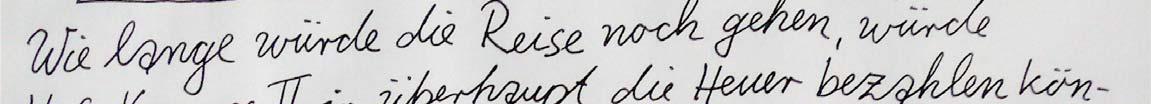 Wie lange würde die Reise noch gehen, würde
überhaupt die Heuer bezahlen kön-